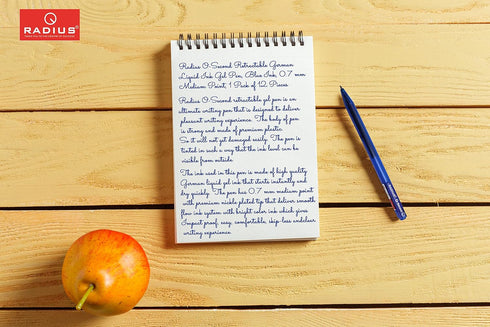 RADIUS®
Radius O-Second Retractable German
Liquid Ink Gel Pen, Blue Ink, 0.7 mm
Medium Point, 1 Pack of 12 Pieces
Radius O-Second retractable gel pen is an
ultimate writing pen that is designed to deliver
pleasant writing experience. The body of pen
is strong and made of premium plastic.
So it will not get damaged easily. The pen is
tinted in such a way that the ink level can be
visible from outside.
The ink used in this pen is made of high quality
German liquid gel ink that starts instantly and
dry quickly. The pen has 0.7 mm medium point
with premium nickle plated tip that deliver smooth
flow ink system with bright color ink which gives
Impact proof, easy, comfortable, skip-less and clear
writing experience.